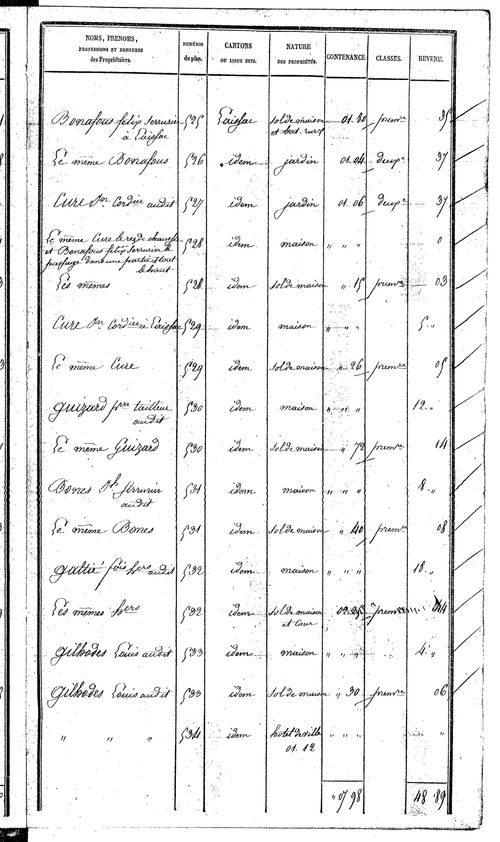 NOMS, PRENOMS, PROFESSIONS ET DEMEURES des Propriétaires. NUMÉROS du plan. CANTONS OU LIEUX DITS. NATURE DES PROPRIÉTÉS. CONTENANCE. CLASSES. REVENU.
Bonafous felix Serrurier à Laissac 525 Laissac sol de maison et bat. rural 01.30 prem.re 35
Le même Bonafous 526 idem jardin 01.04 deux.e 37
Cure Cordier audit 527 idem jardin 01.06 deux.e 37
Le même Cure le rez de chaussée
et Bonafous felix Serrurier le 528 idem maison " " " 0
passage dans une partie et tout
le haut
Les mêmes 528 idem sol de maison " 15 prem.re 03
Cure Cordier à Laissac 529 idem maison " " " 5 "
Le même Cure 529 idem sol de maison " 26 prem.re 05
Guizard p.rre tailleur audit 530 idem maison " " " 12 "
Le même Guizard 530 idem sol de maison " 72 prem.re 14
Bones Serrurier audit 531 idem maison " " " 8 "
Le même Bones 531 idem sol de maison " 40 prem.re 08
Galtié fois hers audit 532 idem maison " " " 18 "
Les mêmes hers 532 idem sol de maison et cour prem.re 44
Gilhodes Louis audit 533 idem maison " " " 4 "
Gilhodes Louis audit 533 idem sol de maison " 30 prem.re 06
" " " 534 idem hotel de ville 01.12 " " " "
" 07 98 48.89